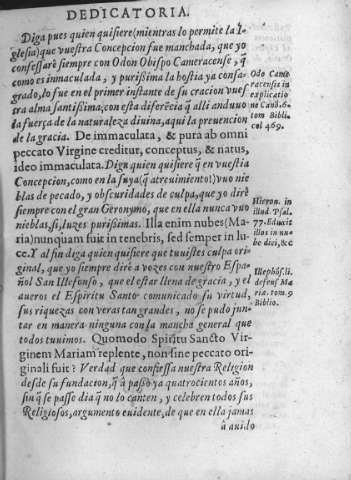 DEDICATORIA.
Diga pues quien quisiere (mientras lo permite la I-
glesia) que vuestra Concepcion fue manchada, que yo
confessarè siempre con Odon Obispo Cameracense, q̃
como es inmaculada, y purißima la hostia ya consa-
grado, lo fue en el primer instante de su cracion vues
tra alma santißima; con esta diferẽcia q̃ alli anduuo
la fuerça de la naturaleza diuina, aqui la preuencion
de la gracia. De immaculata, & pura ab omni
peccato Virgine creditur, conceptus, & natus,
ideo immaculata. Diga quien quisiere q̃ en vuestia
Concepcion, como en la suya (q̃ atreuimiento!) vuo nie
blas de pecado, y obscuridades de culpa, que yo dirè
siempre con el gran Geronymo, que en ella nunca vuo
nieblas, si, luzes purißimas. Illa enim nubes (Ma-
ria) nunquam fuit in tenebris, sed semper in lu-
ce. Y al fin diga quien quisiere que tuuistes culpa ori-
ginal, que yo siempre dirè a vozes con nuestro Espa-
ñol San Illefonso, que el estar llena de gracia, y el
aueros el Espiritu Santo comunicado su virtud,
sus riquezas con veras tan grandes, no se pudo jun-
tar en manera ninguna con la mancha general que
todos tuuimos. Quomodo Spiritu Sancto Vir-
ginem Mariam replente, non sine peccato ori-
ginali fuit? Verdad que confiessa nuestra Religion
desde su fundacion, q̃ â paßo ya quatrocientos años,
sin q̃ se passe dia q̃ no lo canten, y celebren todos sus
Religiosos, argumento euidente, de que en ella jamas
â auido
Odo Came
racensis in
explicatio
ne Cand. 6.
tom Biblio.
col 469.
Hieron. in
illud Psal.
77. Eduxit
illos in nu-
be diei, & c
Illephõs. li.
defens Ma
ria. tom. 9
Biblio.